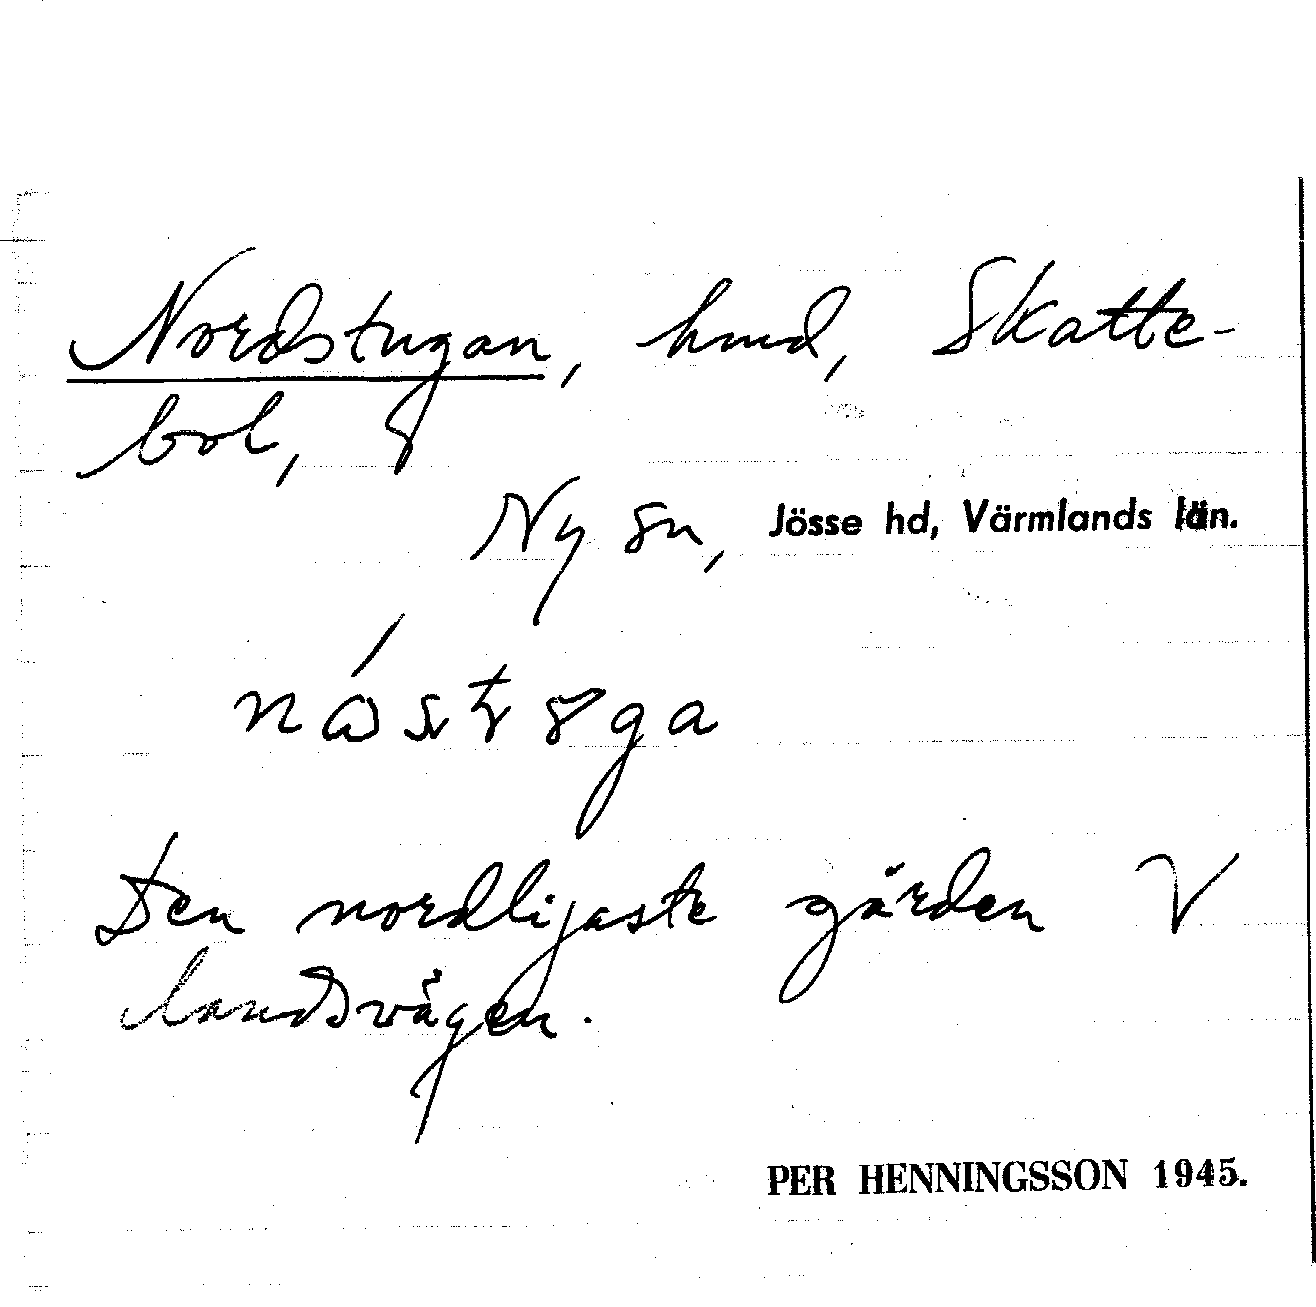 Nordstugan, hmd, Skatte-
bol,
Ny sn, Jösse hd, Värmlands län.
Den nordligaste gården V
landsvägen.
PER HENNINGSSON 1945.